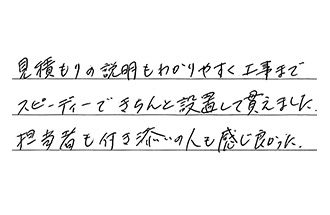 見積もりの説明もわかりやすく工事まで
スピーディーできちんと設置して貰えました.
担当者も付き添いの人も感じ良かった.